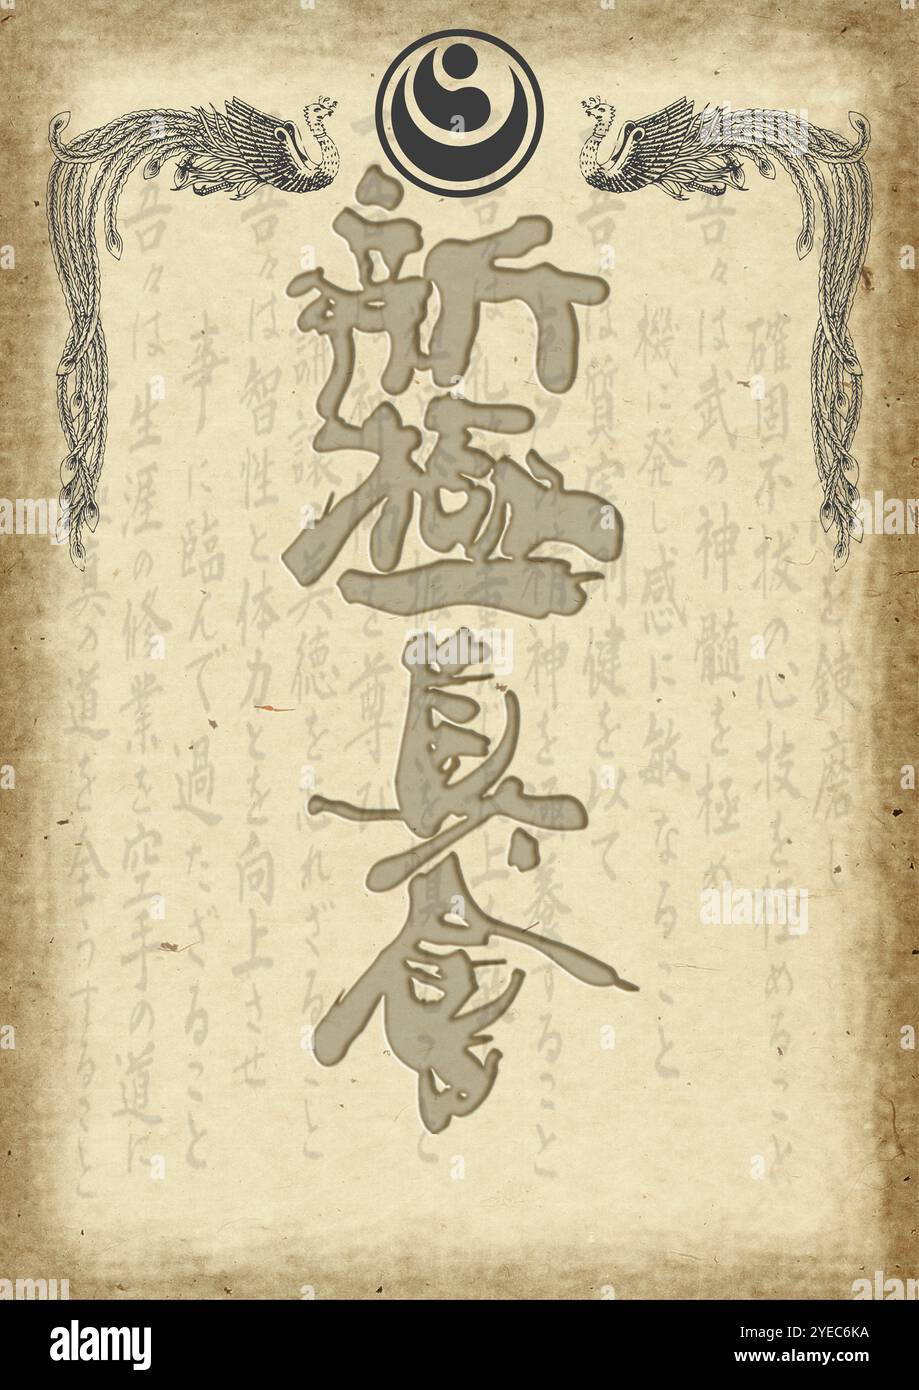 新極真会
を錬磨し
確固不抜の心技を極めること
吾々は武の神髄を極め
機に発し感に敏なること
吾々は質実剛健を以て
精神を養すること
を尊び
謙譲の美徳を忘れざること
吾々は智性と体力とを向上させ
事に臨んで過たざること
吾々は生涯の修業を空手の道に
真の道を全うすること
alamy
Image ID: 2YEC6KA
www.alamy.com